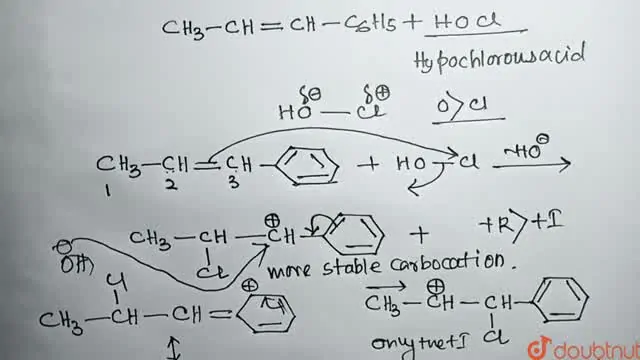 CH₃-CH=CH-C₆H₅ + HOCl
Hypochlorous acid
δ⊖ δ⊕
HO — Cl O>Cl
CH₃-CH=CH- + HO-Cl -HO⊖
1 2 3
⊕
CH₃-CH-CH- + +R>+I
Cl
⊖
OH more stable carbocation.
Cl ⊕
CH₃-CH-CH= CH₃-⊕CH-CH-
I only +ve I Cl
doubtnut